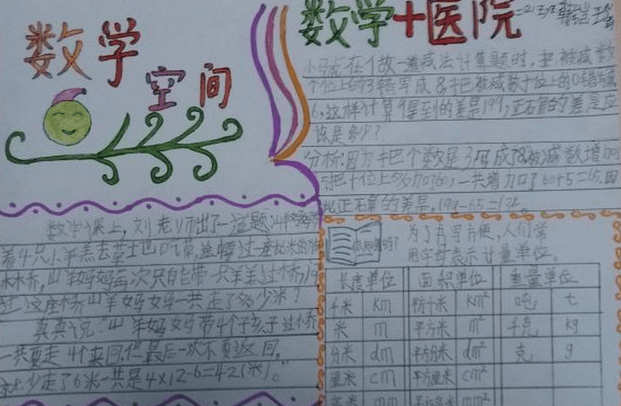 数学
空间
数学+医院
小马虎在做一道减法计算题时,把被减数
个位上的3错写成8,把被减数十位上的0错写成
6,这样计算得到的差是199,正确的差应
该是多少?
分析:因为把个数是3写成8被减数增加
5,把十位上 一共增加了60+5=65,因
此正确的差是,199-65=134。
数学课上,刘老师出了一道题:山羊妈妈
带着4只小羊羔去草地吃草,
木桥,山羊妈妈每次只能带一只羊羔过桥,
过这座桥山羊妈妈一共走了多少米?
真真说:山羊妈妈带4个孩子过桥
一共要走4个来回,但最后一次不要返回,
少走了6米一共是4×12-6=42(米)。
你知道吗?
为了书写方便,人们常
用字母表示计量单位。
长度单位 面积单位 重量单位
千米 km 平方千米 km² 吨 t
米 m 平方米 m² 千克 kg
分米 dm 平方分米 dm² 克 g
厘米 cm 平方厘米 cm²
毫米 mm 平方毫米 mm²